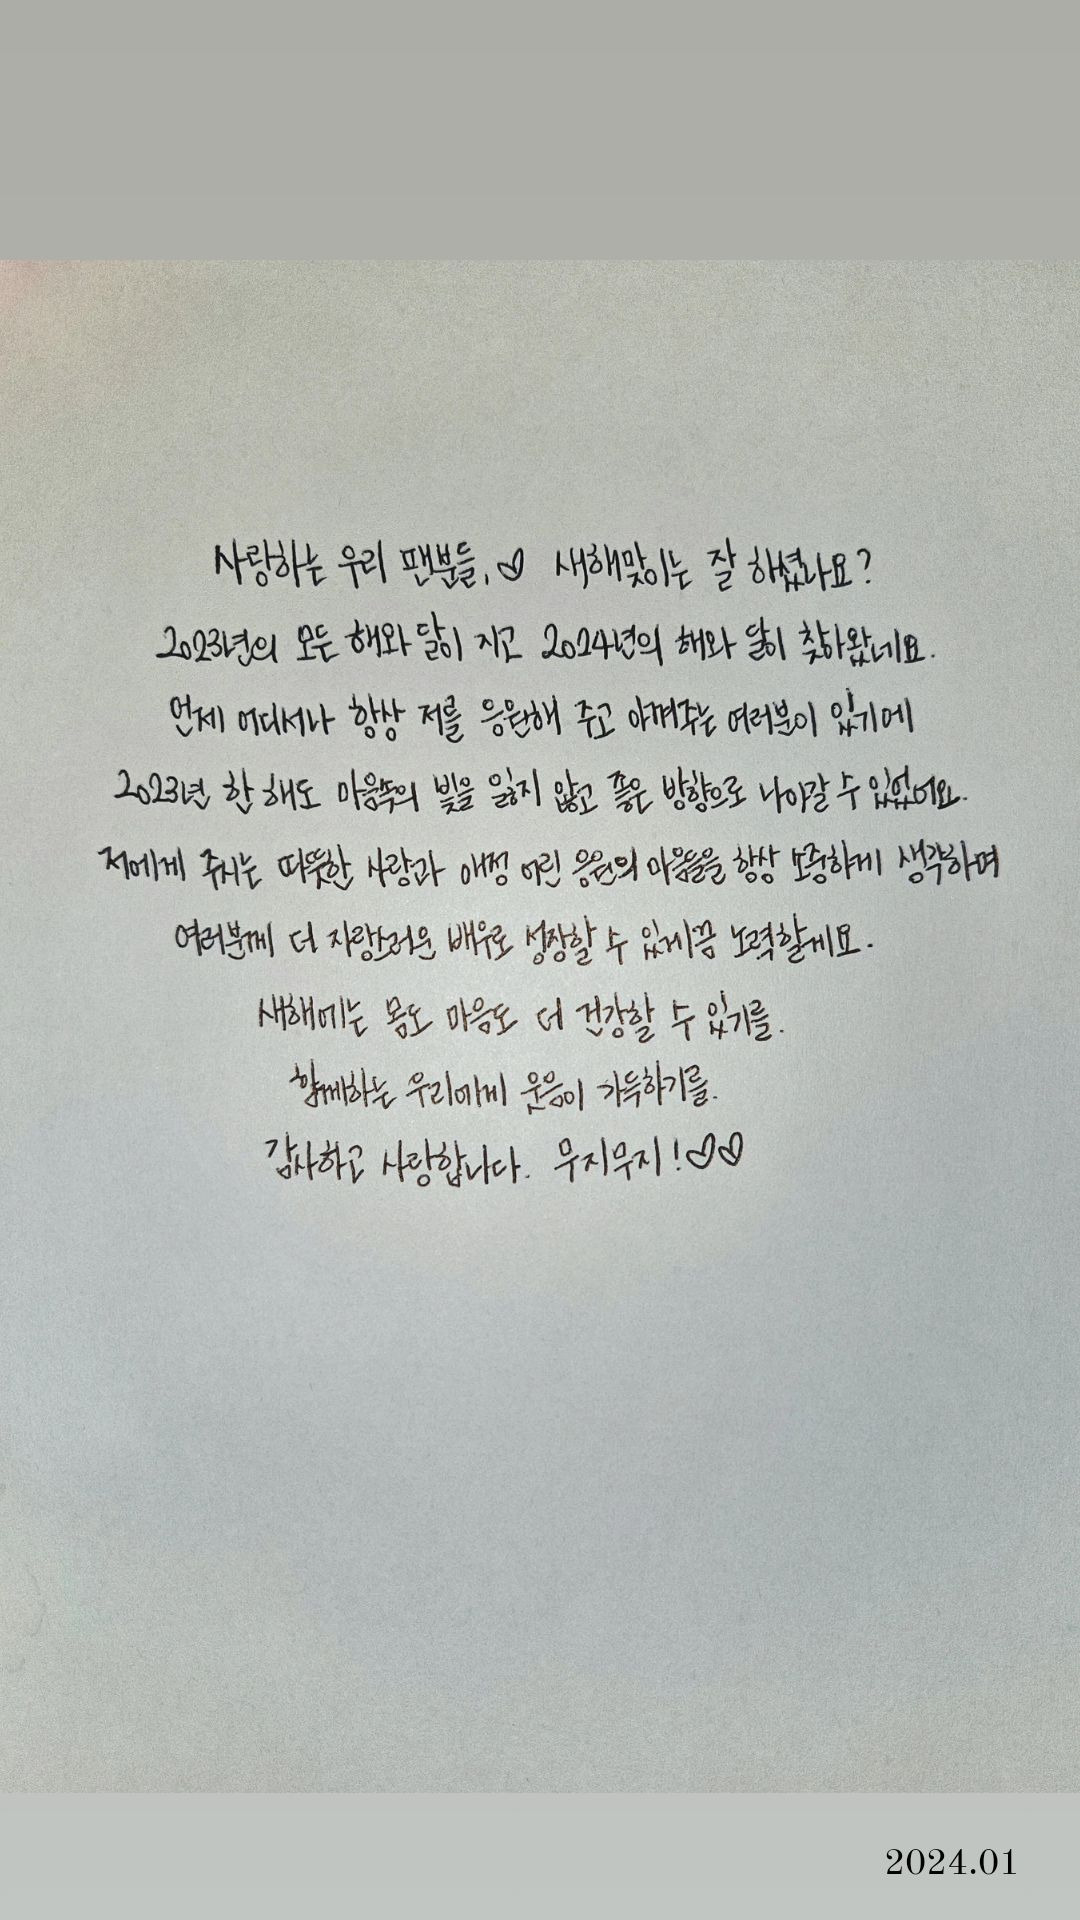 사랑하는 우리 팬분들, ♡ 새해맞이는 잘 하셨나요?
2023년의 모든 해와 달이 지고 2024년의 해와 달이 찾아왔네요.
언제 어디서나 항상 저를 응원해 주고 아껴주는 여러분이 있기에
2023년 한 해도 마음속의 빛을 잃지 않고 좋은 방향으로 나아갈 수 있었어요.
저에게 주시는 따뜻한 사랑과 애정 어린 응원의 마음들을 항상 소중하게 생각하며
여러분께 더 자랑스러운 배우로 성장할 수 있게끔 노력할게요.
새해에는 몸도 마음도 더 건강할 수 있기를.
함께하는 우리에게 웃음이 가득하기를.
감사하고 사랑합니다. 무지무지!♡♡
2024.01